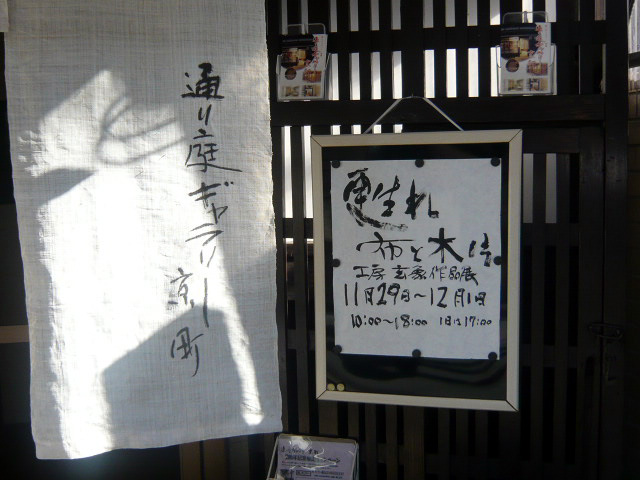 通り庭ギャラリー
京町
甦生れ
布と木
工房 玄原作品展
11月29日～12月1日
10:00～18:00 1日は17:00